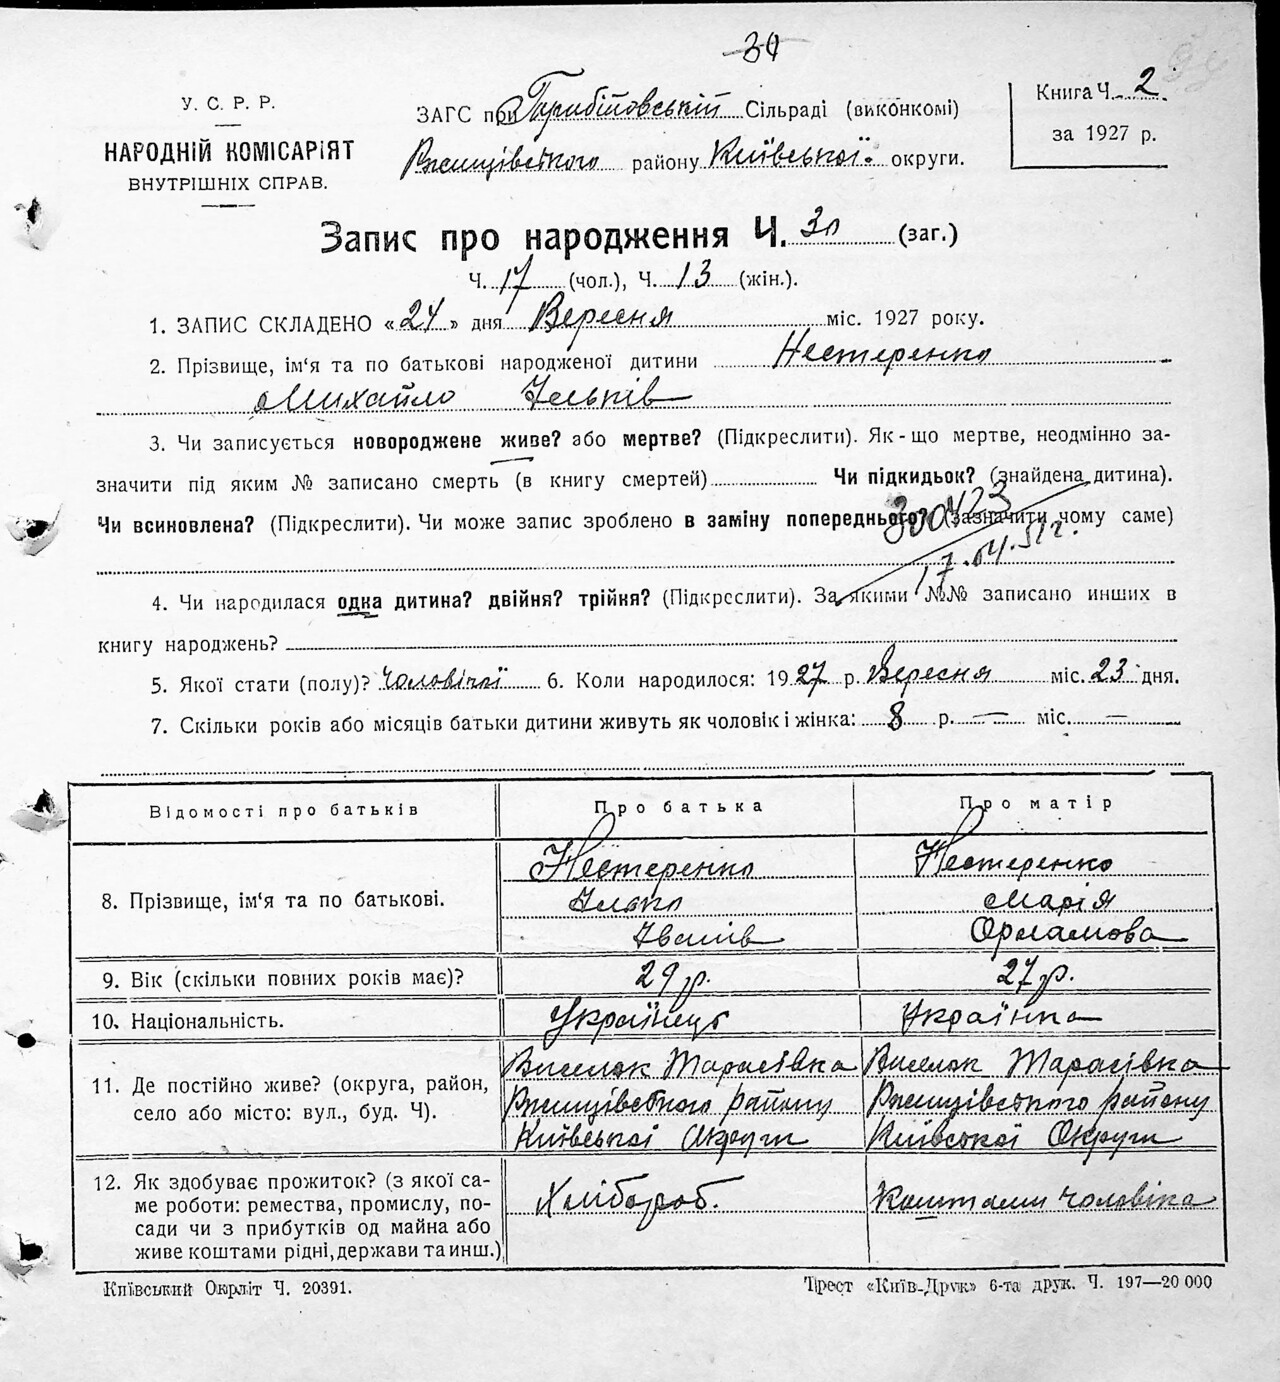 30
У. С. Р. Р.
НАРОДНІЙ КОМІСАРІЯТ
ВНУТРІШНІХ СПРАВ.
ЗАГС при Грибінівській Сільраді (виконкомі)
Ржищівського району Київської округи.
Книга Ч. 2
за 1927 р.
Запис про народження Ч. 30 (заг.)
Ч. 17 (чол.), Ч. 13 (жін.).
1. ЗАПИС СКЛАДЕНО «24» дня Вересня міс. 1927 року.
2. Прізвище, ім'я та по батькові народженої дитини Нестеренко
Михайло Ільків
3. Чи записується новороджене живе? або мертве? (Підкреслити). Як-що мертве, неодмінно за-
значити під яким № записано смерть (в книгу смертей) Чи підкидьок? (знайдена дитина).
Чи всиновлена? (Підкреслити). Чи може запис зроблено в заміну попереднього? (зазначити чому саме)
17.04.51г.
4. Чи народилася одна дитина? двійня? трійня? (Підкреслити). За якими №№ записано инших в
книгу народжень?
5. Якої стати (полу)? Чоловічої 6. Коли народилося: 1927 р. Вересня міс. 23 дня.
7. Скільки років або місяців батьки дитини живуть як чоловік і жінка: 8 р. — міс. —
Відомості про батьків Про батька Про матір
8. Прізвище, ім'я та по батькові. Нестеренко Нестеренко
Ілько Марія
Іванів
9. Вік (скільки повних років має)? 29 р. 27 р.
10. Національність. Українець Українка
11. Де постійно живе? (округа, район, село або місто: вул., буд. Ч). Виселок Тарасівка Виселок Тарасівка
Ржищівського району Ржищівського району
Київської Округи Київської Округи
12. Як здобуває прожиток? (з якої са-
ме роботи: ремества, промислу, по-
сади чи з прибутків од майна або
живе коштами рідні, держави та инш.) Хлібороб. Коштами чоловіка
Київський Окрліт Ч. 20391.
Трест «Київ-Друк» 6-та друк. Ч. 197—20 000